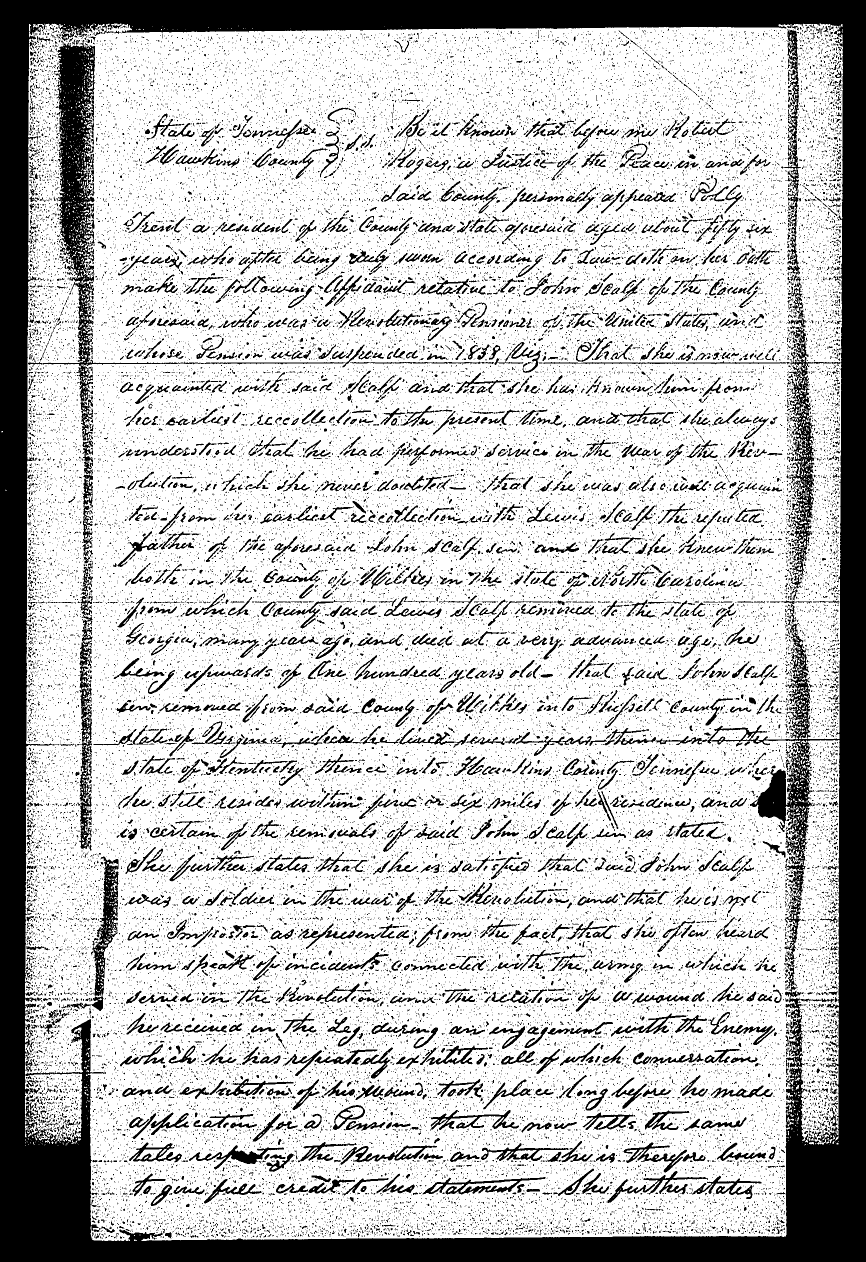 State of Tennessee } s.s. Be it known that before me Robert
Hawkins County } Rogers, a Justice of the Peace in and for
said County. personally appeared Polly
Trent a resident of the County and State aforesaid aged about fifty six
years, who after being duly sworn according to Law doth on her oath
make the following Affidavit relative to John Scalf of the County
aforesaid, who was a Revolutionary Pensioner of the United States, and
whose Pension was suspended in 1838, Viz;— That she is now well
acquainted with said Scalf and that she has known him from
her earliest reccollection to the present time, and that she always
understood that he had performed service in the war of the Rev-
-olution, which she never doubted— that she was also well acquain
ted from her earliest reccollection with Lewis Scalf the reputed
father of the aforesaid John Scalf sen. and that she knew them
both in the County of Wilkes in the state of North Carolina
from which County said Lewis Scalf removed to the state of
Georgia, many years ago, and died at a very advanced age, he
being upwards of One hundred years old— that said John Scalf
sen. removed from said County of Wilkes into Russell County in the
state of Virginia, where he lived several years thence into the
state of Kentucky thence into Hawkins County Tennessee where
he still resides within five or six miles of her residence, and
is certain of the removals of said John Scalf sen as stated.
She further states that she is satisfied that said John Scalf
was a Soldier in the war of the Revolution, and that he is not
an Impostor as represented; from the fact, that she often heard
him speak of incidents connected with the army in which he
served in the Revolution, and the relation of a wound he said
he received in the Leg, during an engagement with the Enemy.
which he has repeatedly exhibited; all of which conversation
and exhibition of his wound, took place long before he made
application for a Pension— that he now tells the same
tales respecting the Revolution and that she is therefore bound
to give full credit to his statements— She further states